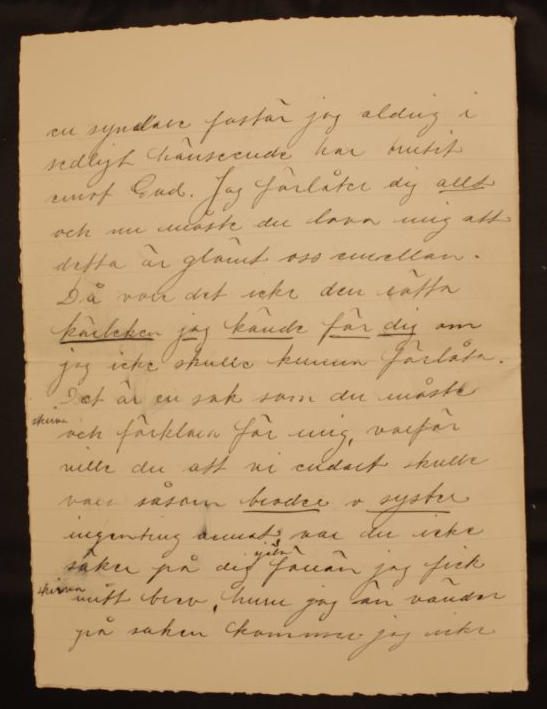 en syndare fastän jag aldrig i
sedligt hänseende har brutit
emot Gud. Jag förlåter dig allt
och nu måste du lova mig att
detta är glömt oss emellan.
Då vore det icke den rätta
kärleken jag kände för dig om
jag icke skulle kunna förlåta.
Det är en sak som du måste
skriva
och förklara för mig, varför
ville du att vi endast skulle
vara såsom broder o syster
ingenting annat, var du icke
själv
säker på dig förrän jag fick
skriva
mitt brev, huru jag än vänder
på saken kommer jag icke